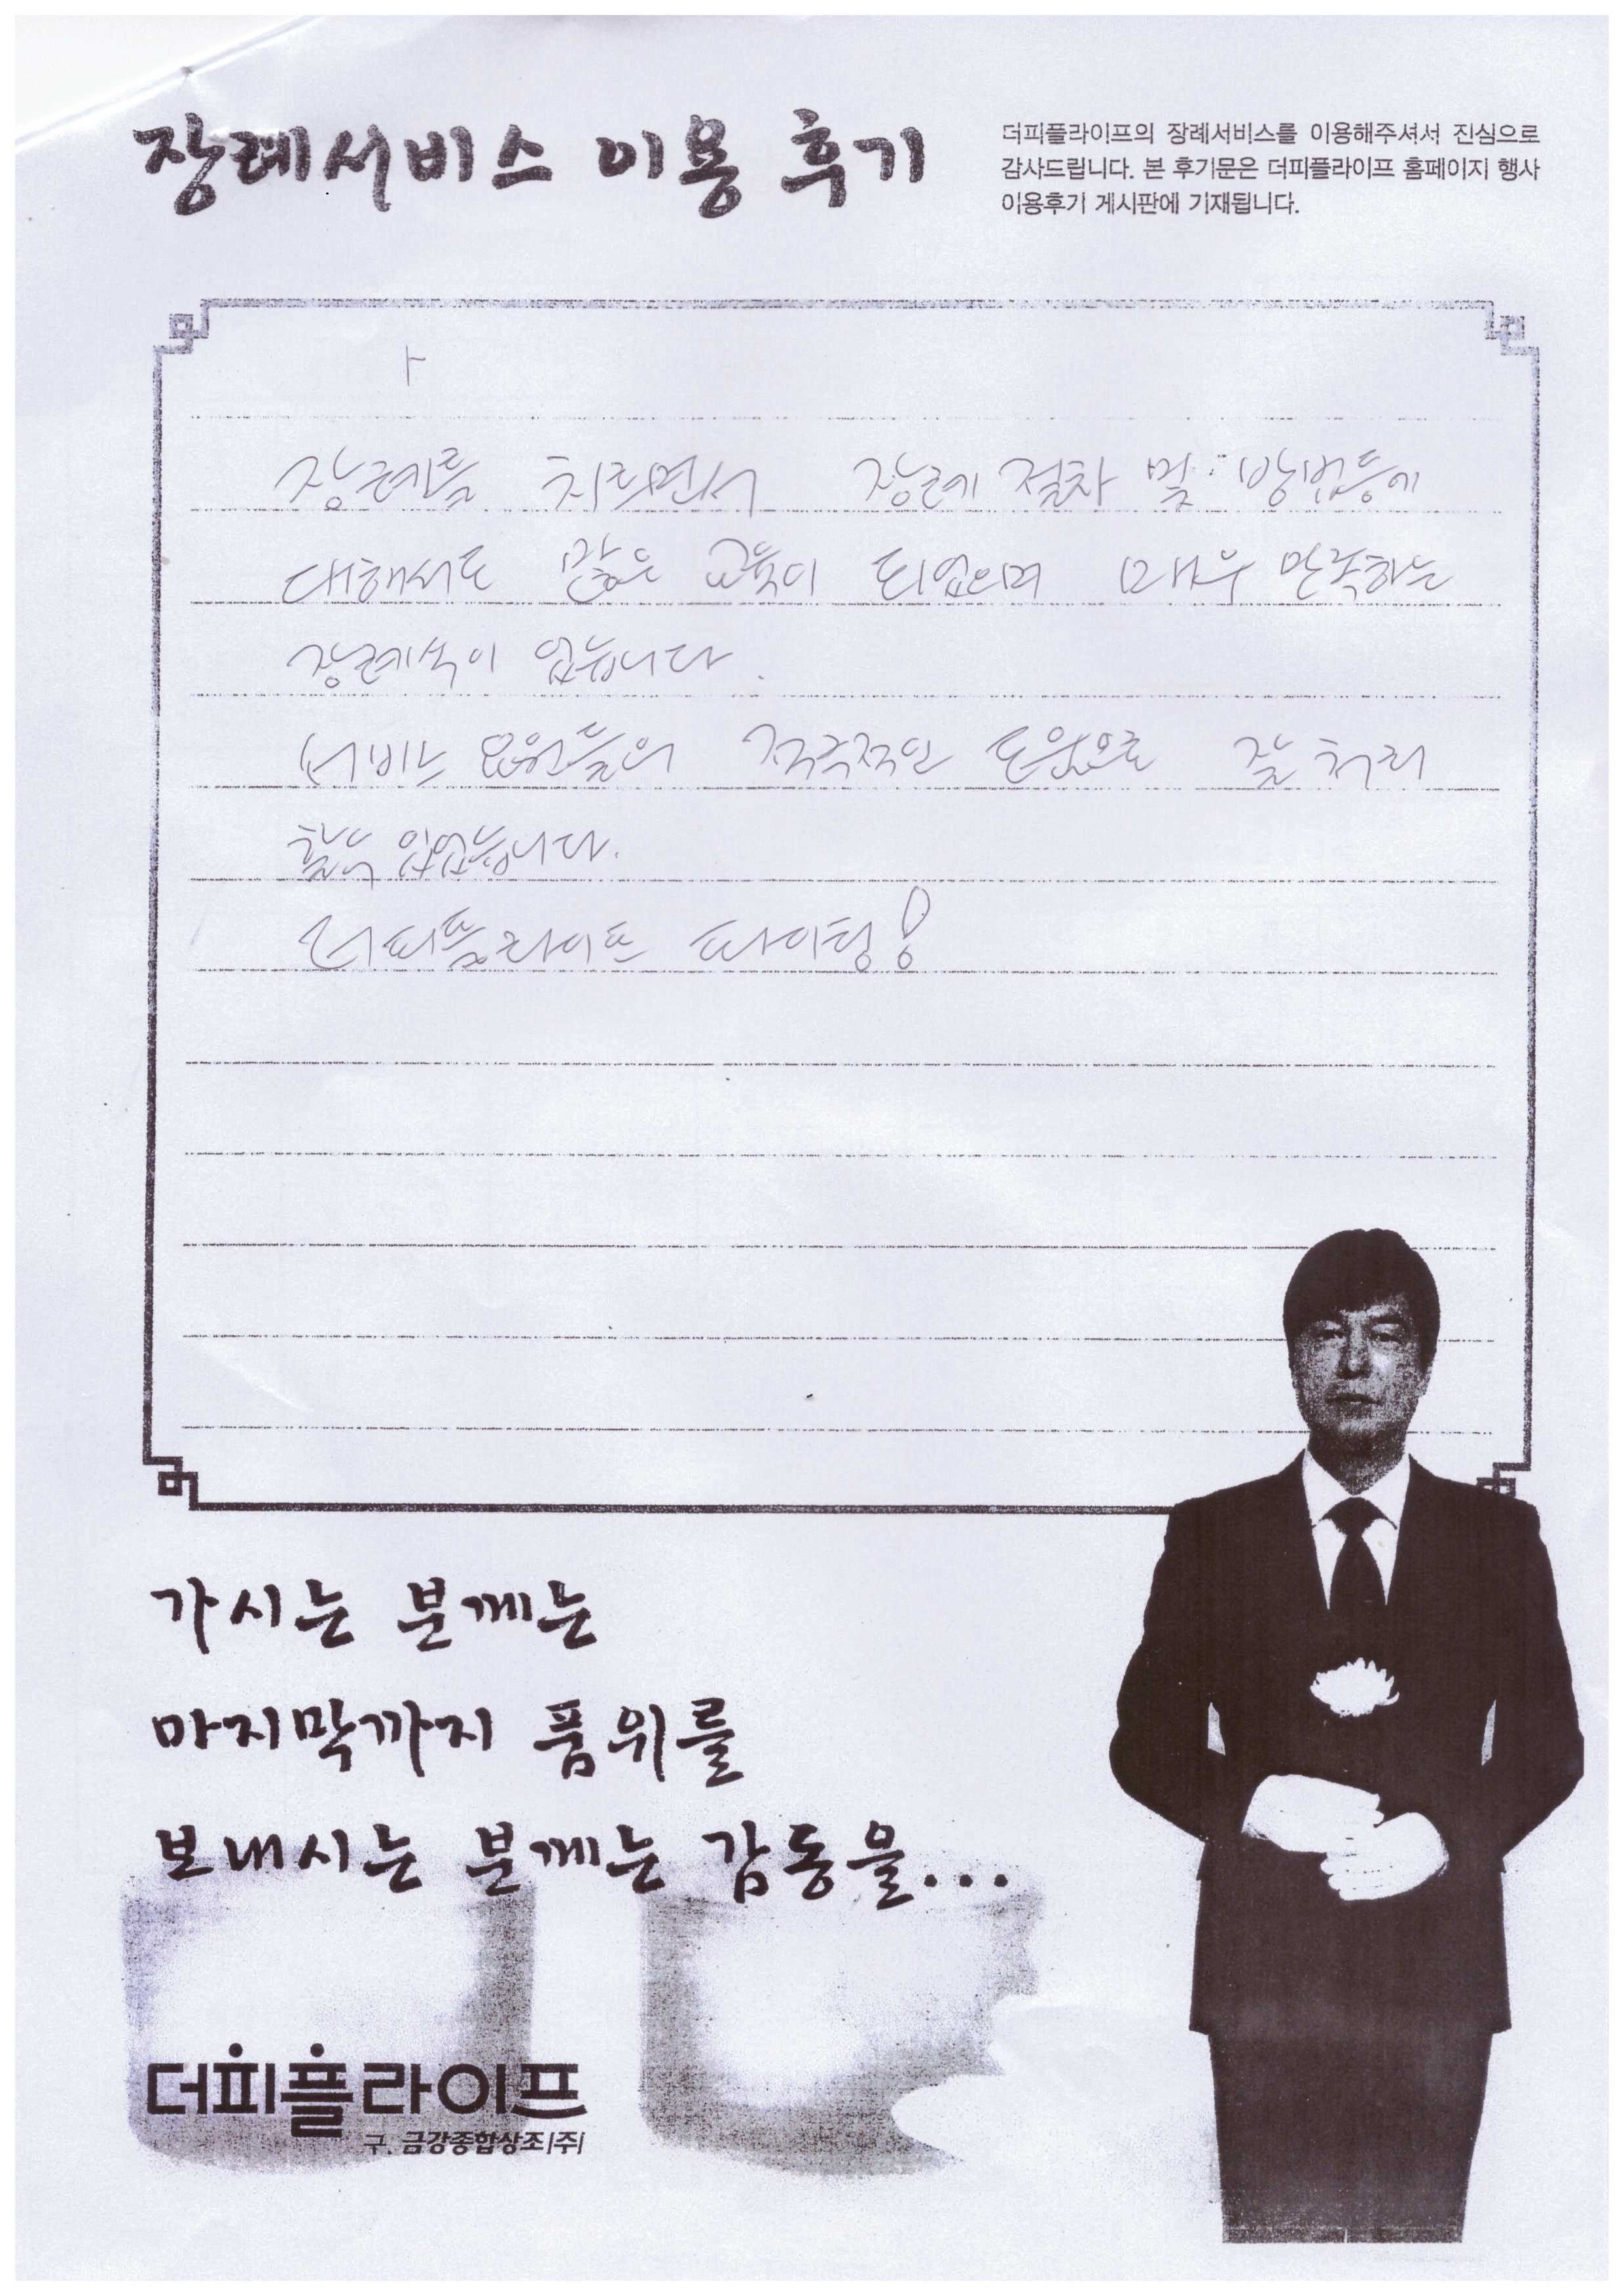 장례서비스 이용 후기
더피플라이프의 장례서비스를 이용해주셔서 진심으로
감사드립니다. 본 후기문은 더피플라이프 홈페이지 행사
이용후기 게시판에 기재됩니다.
ㅏ
장례를 치르면서 장례 절차 및 방법등에
대해서도 많은 교육이 되었으며 매우 만족하는
장례식이 었습니다.
서비스 요원들의 적극적인 도움으로 잘 처리
할수 있었습니다.
더피플라이프 파이팅!
가시는 분께는
마지막까지 품위를
보내시는 분께는 감동을...
더피플라이프
구. 금강종합상조(주)